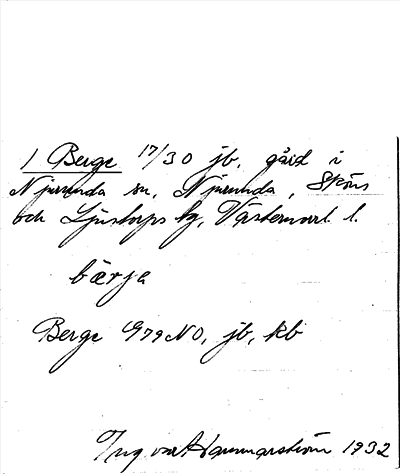 1 Berge 17/30 jb, gård i
Njurunda sn, Njurunda, Sköns
och Ljustorps tg, Västernorrl. l.
bærja
Berge 979 NO, jb, kb
Ingvar Hammarström 1932